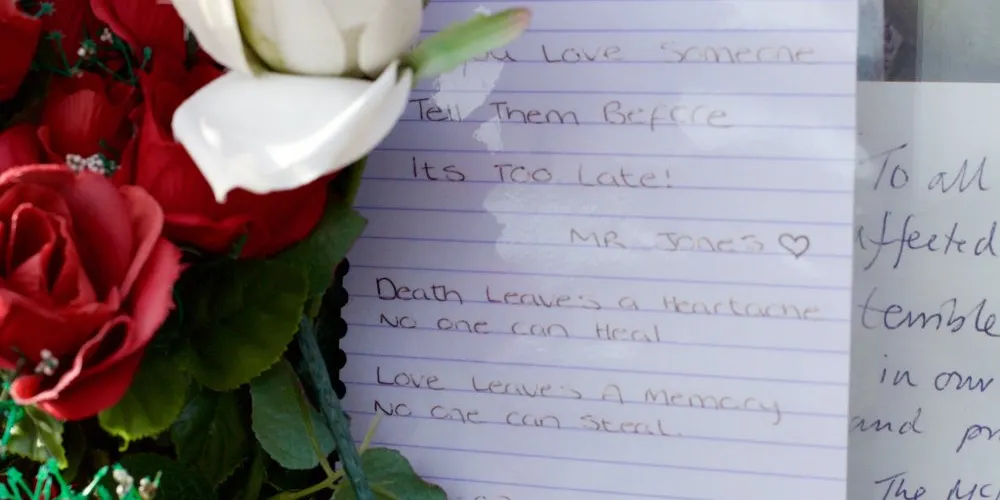 you Love Someone
Tell Them Before
Its Too Late!
MR Jones ♡
Death Leave's a Heartache
No one can Heal
Love Leave's A Memory
No one can Steal.
To all
affected
terrible
in our
and
The